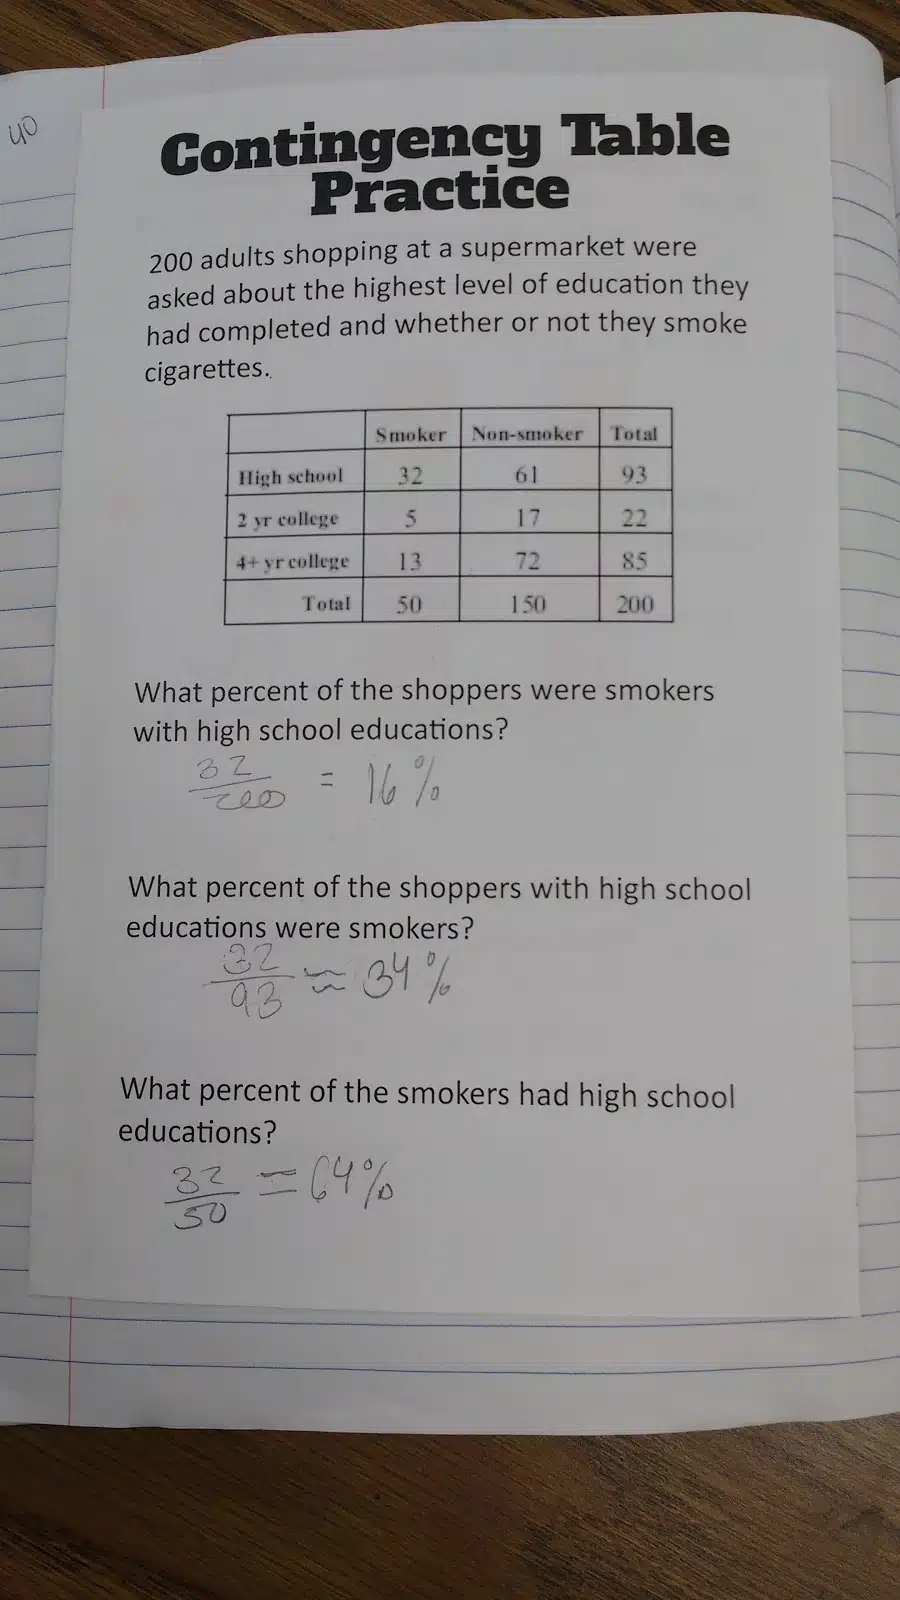 40
Contingency Table
Practice
200 adults shopping at a supermarket were
asked about the highest level of education they
had completed and whether or not they smoke
cigarettes.
Smoker Non-smoker Total
High school 32 61 93
2 yr college 5 17 22
4+ yr college 13 72 85
Total 50 150 200
What percent of the shoppers were smokers
with high school educations?
32/200 = 16%
What percent of the shoppers with high school
educations were smokers?
32/93 ≈ 34%
What percent of the smokers had high school
educations?
32/50 = 64%